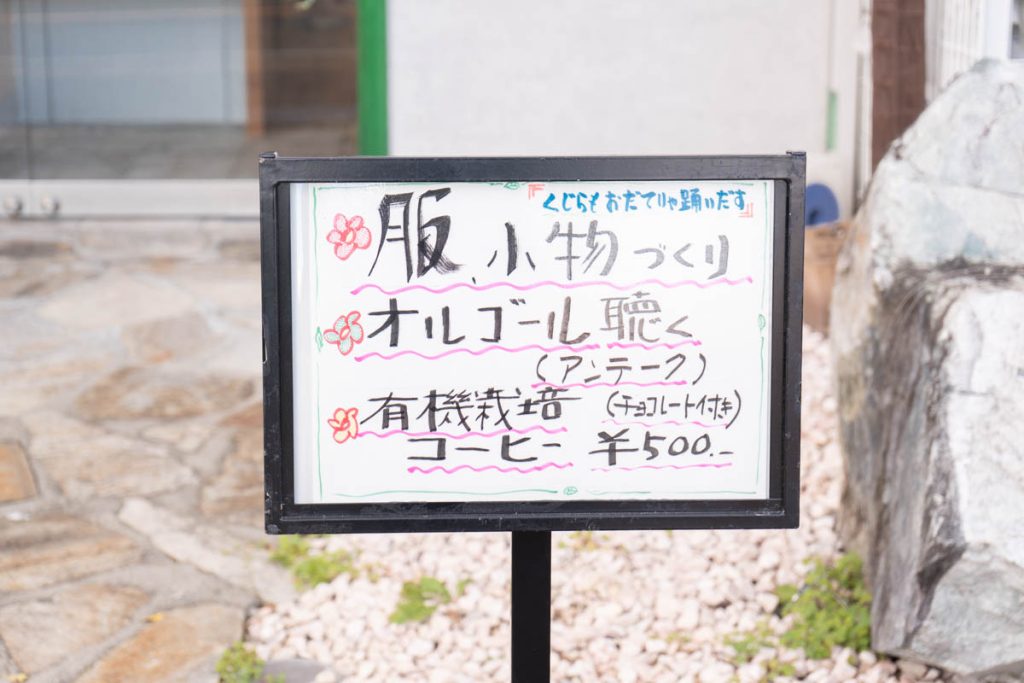 くじらもおだてりゃ踊いだす
服、小物づくり
オルゴール聴く
(アンテーク)
有機栽培 (チョコレート付き)
コーヒー ¥500.-